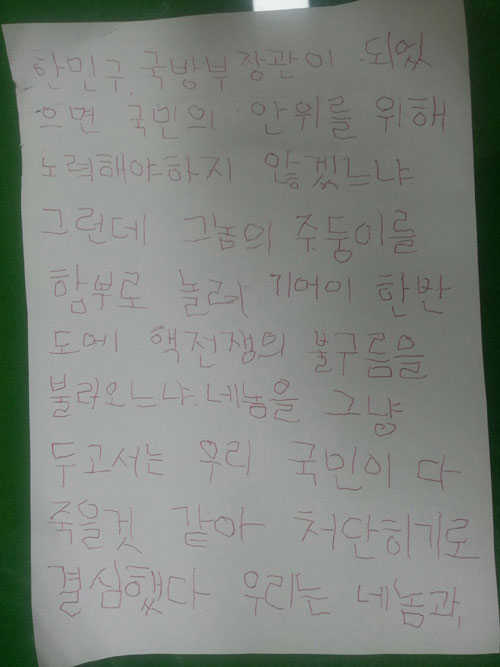 한민구 국방부장관이 되었
으면 국민의 안위를 위해
노력해야하지 않겠느냐
그런데 그놈의 주둥이를
함부로 놀려 기어이 한반
도에 핵전쟁의 불구름을
불러오느냐. 네놈을 그냥
두고서는 우리 국민이 다
죽을것 같아 처단히기로
결심했다. 우리는 네놈과,